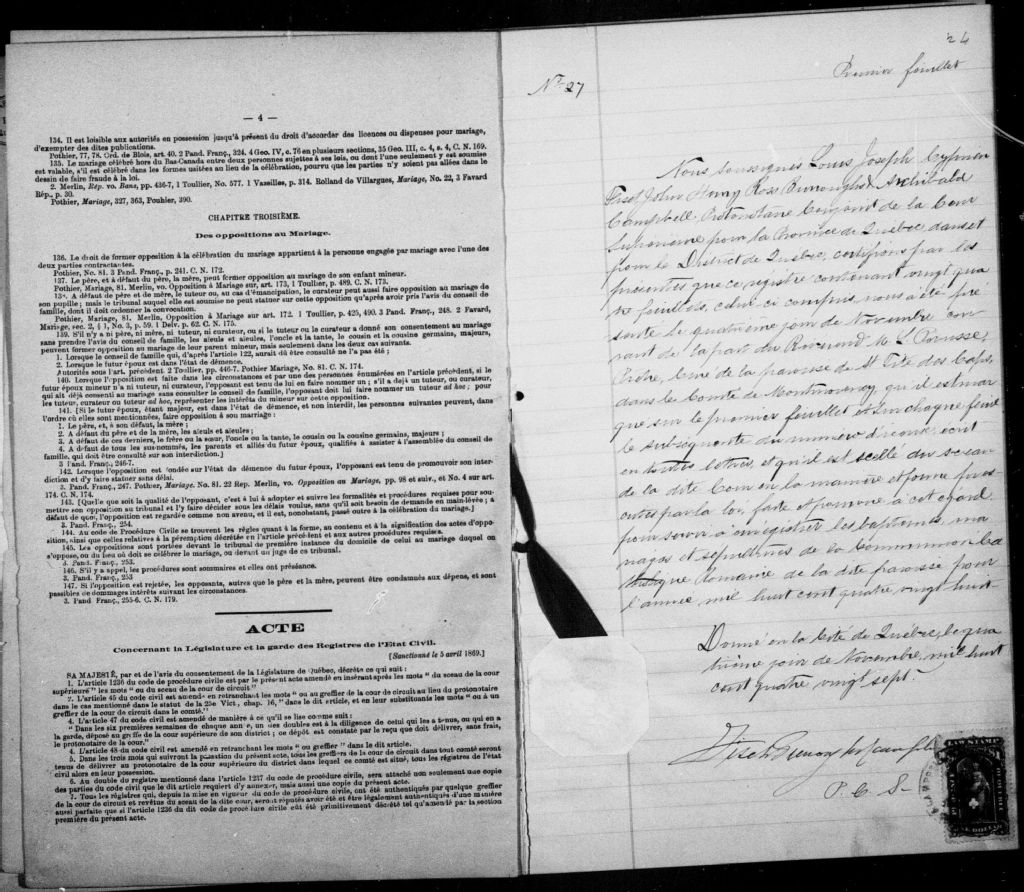 — 4 —
134. Il est loisible aux autorités en possession jusqu'à présent du droit d'accorder des licences ou dispenses pour mariage,
d'exempter des dites publications.
Pothier, 77, 78. Ord. de Blois, art. 40. 2 Pand. Franç., 324. 4 Geo. IV, c. 76 en plusieurs sections, 35 Geo. III, c. 4, s. 4, C. N. 169.
135. Le mariage célébré hors du Bas-Canada entre deux personnes sujettes à ses lois, ou dont l'une seulement y est soumise
est valable, s'il est célébré dans les formes usitées au lieu de la célébration, pourvu que les parties n'y soient pas allées dans le
dessin de faire fraude à la loi.
2. Merlin, Rép. vo. Bans, pp. 436-7, 1 Toullier, No. 577. 1 Vazeilles, p. 314. Rolland de Villargues, Mariage, No. 22, 3 Favard
Rép., p. 30.
Pothier, Mariage, 327, 363, Pouhier, 390.
CHAPITRE TROISIÈME.
Des oppositions au Mariage.
136. Le droit de former opposition à la célébration du mariage appartient à la personne engagée par mariage avec l'une des
deux parties contractantes.
Pothier, No. 81. 3 Pand. Franç., p. 241. C. N. 172.
137. Le père, et à défaut du père, la mère, peut former opposition au mariage de son enfant mineur.
Pothier, Mariage, 81. Merlin, vo. Opposition à Mariage sur, art. 173, 1 Toullier, p. 489. C. N. 173.
138. A défaut de père et de mère, le tuteur ou, au cas d'émancipation, le curateur peut aussi faire opposition au mariage de
son pupille; mais le tribunal auquel elle est soumise ne peut statuer sur cette opposition qu'après avoir pris l'avis du conseil de
famille, dont il doit ordonner la convocation.
Pothier, Mariage, 81. Merlin, Opposition à Mariage sur art. 172. 1 Toullier, p. 425, 490. 3 Pand. Franç., 248. 2 Favard,
Mariage, sec. 2, § 1, No. 3, p. 59. 1 Delv. p. 62. C. N. 175.
139. S'il n'y a ni père, ni mère, ni tuteur, ni curateur, ou si le tuteur ou le curateur a donné son consentement au mariage
sans prendre l'avis du conseil de famille, les aïeuls et aïeules, l'oncle et la tante, le cousin et la cousine germains, majeurs,
peuvent former opposition au mariage de leur parent mineur, mais seulement dans les deux cas suivants.
1. Lorsque le conseil de famille qui, d'après l'article 122, aurait dû être consulté ne l'a pas été ;
2. Lorsque le futur époux est dans l'état de démence.
Autorités sous l'art. précédent 2 Toullier, pp. 446-7. Pothier Mariage, No. 81. C. N. 174.
140. Lorsque l'opposition est faite dans les circonstances et par une des personnes énumérées en l'article précédent, si le
futur époux mineur n'a ni tuteur, ni curateur, l'opposant est tenu de lui en faire nommer un ; s'il a dejà un tuteur, ou curateur,
qui ait déjà consenti au mariage sans consulter le conseil de famille, l'opposant doit lui faire nommer un tuteur ad hoc ; pour
les tuteur, curateur ou tuteur ad hoc, représenter les intérêts du mineur sur cette opposition.
141. [Si le futur époux, étant majeur, est dans l'état de démence, et non interdit, les personnes suivantes peuvent, dans
l'ordre où elles sont mentionnées, faire opposition à son mariage :
1. Le père, et, à son défaut, la mère ;
2. A défaut du père et de la mère, les aïeuls et aïeules ;
3. A défaut de ces derniers, le frère ou la sœur, l'oncle ou la tante, le cousin ou la cousine germains, majeurs ;
4. A défaut de tous les sus-nommés, les parents et alliés du futur époux, qualifiés à assister à l'assemblée du conseil de
famille, qui doit être consulté sur son interdiction.]
3 Pand. Franç., 246-7.
142. Lorsque l'opposition est fondée sur l'état de démence du futur époux, l'opposant est tenu de promouvoir son inter-
diction et d'y faire statuer sans délai.
3. Pand. Franç., 247. Pothier, Mariage. No. 81. 22 Rep. Merlin, vo. Opposition au Mariage, pp. 98 et suiv., et No. 4 sur art.
174. C. N. 174.
143. [Quelle que soit la qualité de l'opposant, c'est à lui à adopter et suivre les formalités et procédures requises pour sou-
mettre son opposition au tribunal et l'y faire décider sous les délais voulus, sans qu'il soit besoin de demande en main-levée ; à
défaut de quoi, l'opposition est regardée comme non avenu, et il est, nonobstant, passé outre à la célébration du mariage.]
3. Pand. Franç., 254.
144. Au code de Procédure Civile se trouvent les règles quant à la forme, au contenu et à la signification des actes d'oppo-
sition, ainsi que celles relatives à la péremption décrétée en l'article précédent et aux autres procédures requises.
145. Les oppositions sont portées devant le tribunal de première instance du domicile de celui au mariage duquel on
s'oppose, ou du lieu où doit se célébrer le mariage, ou devant un juge de ce tribunal.
3. Pand. Franç., 253.
146. S'il y a appel, les procédures sont sommaires et elles ont préséance.
3. Pand. Franç., 253
147. Si l'opposition est rejetée, les opposants, autres que le père et la mère, peuvent être condamnés aux dépens, et sont
passibles de dommages intérêts suivant les circonstances.
3. Pand. Franç., 255-6. C. N. 179.
ACTE
Concernant la Législature et la garde des Registres de l'Etat Civil.
[Sanctionné le 5 avril 1869.]
SA MAJESTÉ, par et de l'avis du consentement de la Législature de Québec, décrète ce qui suit :
1. L'article 1236 du code de procédure civile est par le présent acte amendé en insérant après les mots " du sceau de la cour
supérieure " les mots " ou du sceau de la cour de circuit "
2. L'article 45 du code civil est amendé en retranchant les mots " ou au greffier de la cour de circuit au lieu du protonotaire
dans le cas mentionné dans le statut de la 25e Vict., chap. 16, " dans le dit article, et en leur substituants les mots " ou à un
greffier de la cour de circuit dans le comté."
4. L'article 47 du code civil est amendé de manière à ce qu'il se lise comme suit :
" Dans les six premières semaines de chaque année, un des doubles est à la diligence de celui qui les a tenus, ou qui en a
la garde, déposé au greffe de la cour supérieure de son district ; ce dépôt est constaté par le reçu que doit délivrer, sans frais,
le protonotaire de la cour."
4. L'article 48 du code civil est amendé en retranchant les mots " ou greffier " dans le dit article.
5. Dans les trois mois qui suivront la passation du présent acte, tous les greffiers de la cour de circuit dans tout comté seront
tenus de délivrer au protonotaire de la cour supérieure du district dans lequel ce comté est situé, tous les régistres de l'état
civil alors en leur possession.
6. Au double du registre mentionné dans l'article 1237 du code de procédure civile, sera attaché non seulement une copie
des parties du code civil que le dit article requiert d'y annexer, mais aussi une copie du présent acte.
7. Tous les régistres qui, depuis la mise en vigueur du code de procédure civile, ont été authentiqués par quelque greffier
de la cour de circuit et revêtus du sceau de la dite cour, seront réputés avoir été et être légalement authentiqués d'une manière
aussi parfaite que si l'article 1236 du dit code de procédure civile eût été primitivement décrété tel qu'amendé par la section
première du présent acte.
24
Nº 27
Premier feuillet
Nous soussignés Louis Joseph Cyprien
Fiset, John Henry Ross Burroughs & Archibald
Campbell Protonotaire Conjoint de la Cour
Supérieure pour la Province de Québec dans et
pour le District de Québec, certifions par les
présentes que ce registre contenant vingt qua
tre feuillets, celui ci compris, nous a été pré
senté le quatrième jour de Novembre cou
rant de la part du Révérend M. L. Parrusse,
Prêtre, Curé de la paroisse de St Tite des Caps,
dans le Comté de Montmorency, qu'il est mar
qué sur le premier feuillet et sur chaque feuil
le subséquente du numéro d'icelle écrit
en toutes lettres, et qu'il est scellé du sceau
de la dite Cour en la manière et forme pres
crites par la loi, faite et pourvue à cet égard
pour servir à enregistrer les baptêmes, ma
riages et sépultures de la Communion Ca
tholique Romaine de la dite paroisse pour
l'année mil huit cent quatre vingt huit
Donné en la Cité de Québec, le qua
trième jour de Novembre, mil huit
cent quatre vingt sept.
P. C. S.
LAW STAMP
ONE DOLLAR